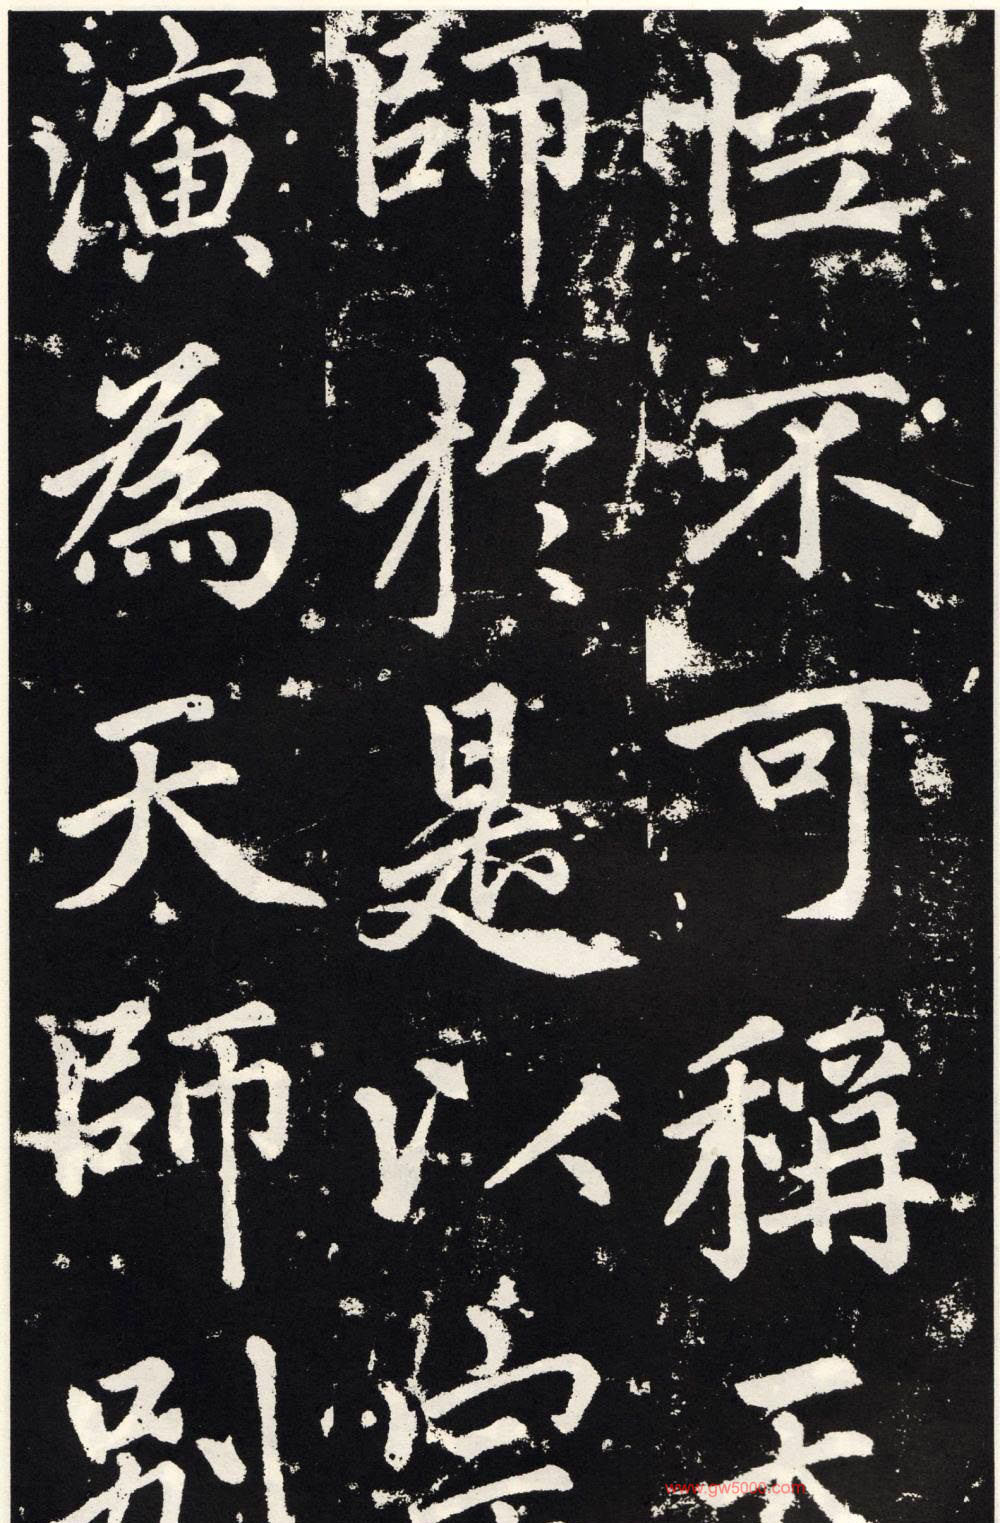 不可稱天
師於是以宗
演為天師別
www.gw5000.com